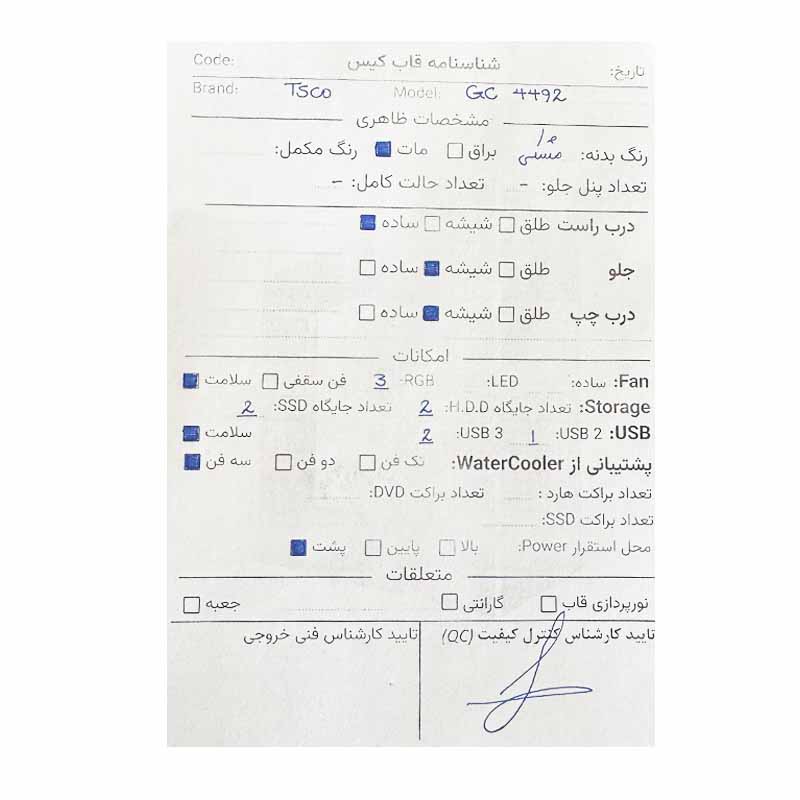 Code: شناسنامه قاب کیس تاریخ:
Brand: TSCO Model: GC 4492
مشخصات ظاهری
رنگ بدنه: مشکی براق مات رنگ مکمل:
تعداد پنل جلو: - تعداد حالت کامل: -
درب راست طلق شیشه ساده
جلو طلق شیشه ساده
درب چپ طلق شیشه ساده
امکانات
Fan: ساده: LED: RGB- 3 فن سقفی سلامت
Storage: تعداد جایگاه H.D.D: 2 تعداد جایگاه SSD: 2
USB: USB 2: 1 USB 3: 2 سلامت
پشتیبانی از WaterCooler: تک فن دو فن سه فن
تعداد براکت هارد: تعداد براکت DVD:
تعداد براکت SSD:
محل استقرار Power: بالا پایین پشت
متعلقات
نورپردازی قاب گارانتی جعبه
تایید کارشناس کنترل کیفیت (QC) تایید کارشناس فنی خروجی